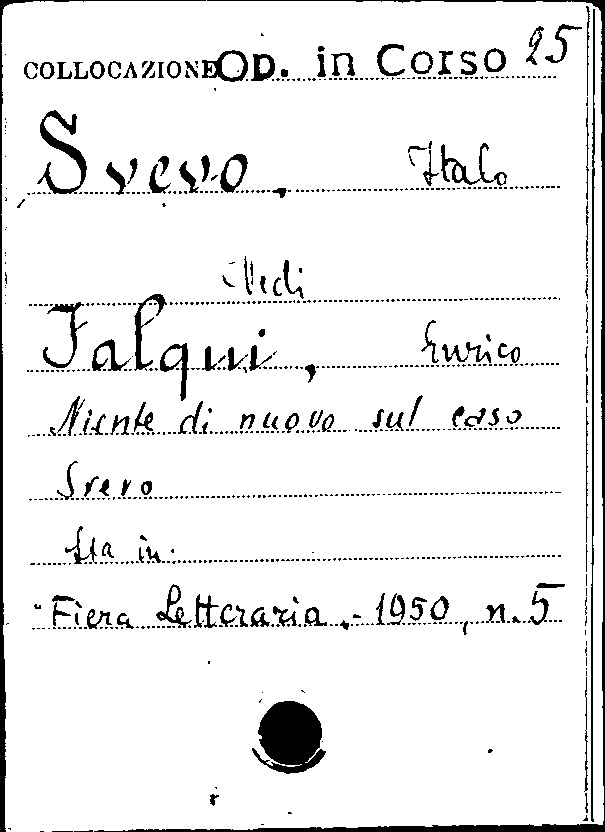 COLLOCAZIONE OP. in Corso 25
Svevo, Italo
Vedi
Falqui, Enrico
Niente di nuovo sul caso
Svevo
Sta in:
"Fiera Letteraria.- 1950, n. 5